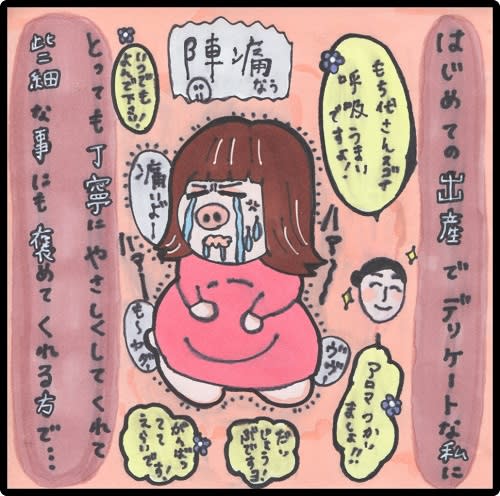 はじめての出産でデリケートな私に
もち代さんスゴイ
呼吸うまい
ですよ!
陣痛
なう
いつでも
よんで下さい!
痛いよー
ハァー
ハァー
も〜ヤダ
ヴヴ
アロマつかい
ましょ!!
だい
じょう
ぶですョ
がんばっ
てて
えらいです!
とっても丁寧にやさしくしてくれて
些細な事にも褒めてくれる方で…